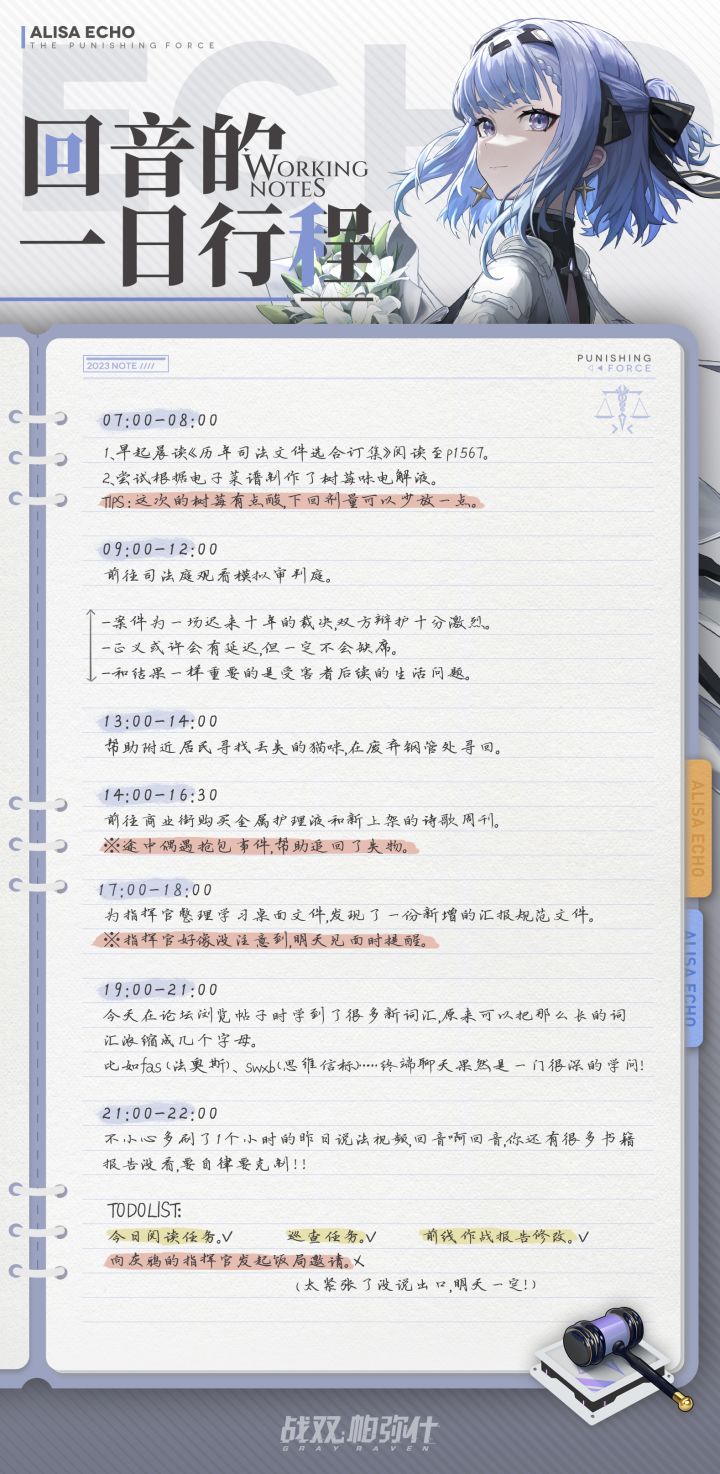 ALISA ECHO
THE PUNISHING FORCE
ECHO
回音的
WORKING
NOTES
一日行程
2023 NOTE ////
PUNISHING
FORCE
07:00-08:00
1、早起晨读《历年司法文件选合订集》阅读至p1567。
2、尝试根据电子菜谱制作了树莓味电解液。
TIPS:这次的树莓有点酸,下回剂量可以少放一点。
09:00-12:00
前往司法庭观看模拟审判庭。
-案件为一场迟来十年的裁决,双方辩护十分激烈。
-正义或许会有延迟,但一定不会缺席。
-和结果一样重要的是受害者后续的生活问题。
13:00-14:00
帮助附近居民寻找丢失的猫咪,在废弃钢管处寻回。
14:00-16:30
前往商业街购买金属护理液和新上架的诗歌周刊。
※途中偶遇抢包事件,帮助追回了失物。
17:00-18:00
为指挥官整理学习桌面文件,发现了一份新增的汇报规范文件。
※指挥官好像没注意到,明天见面时提醒。
19:00-21:00
今天在论坛浏览帖子时学到了很多新词汇,原来可以把那么长的词
汇浓缩成几个字母。
比如fas(法奥斯)、swxb(思维信标)……终端聊天果然是一门很深的学问!
21:00-22:00
不小心多刷了1个小时的昨日说法视频,回音啊回音,你还有很多书籍
报告没看,要自律要克制!!
TODOLIST:
今日阅读任务。✓ 巡查任务。✓ 前线作战报告修改。✓
向灰鸦的指挥官发起饭局邀请。×
(太紧张了没说出口,明天一定!)
ALISA ECHO
ALISA ECHO
战双帕弥什
GRAY RAVEN